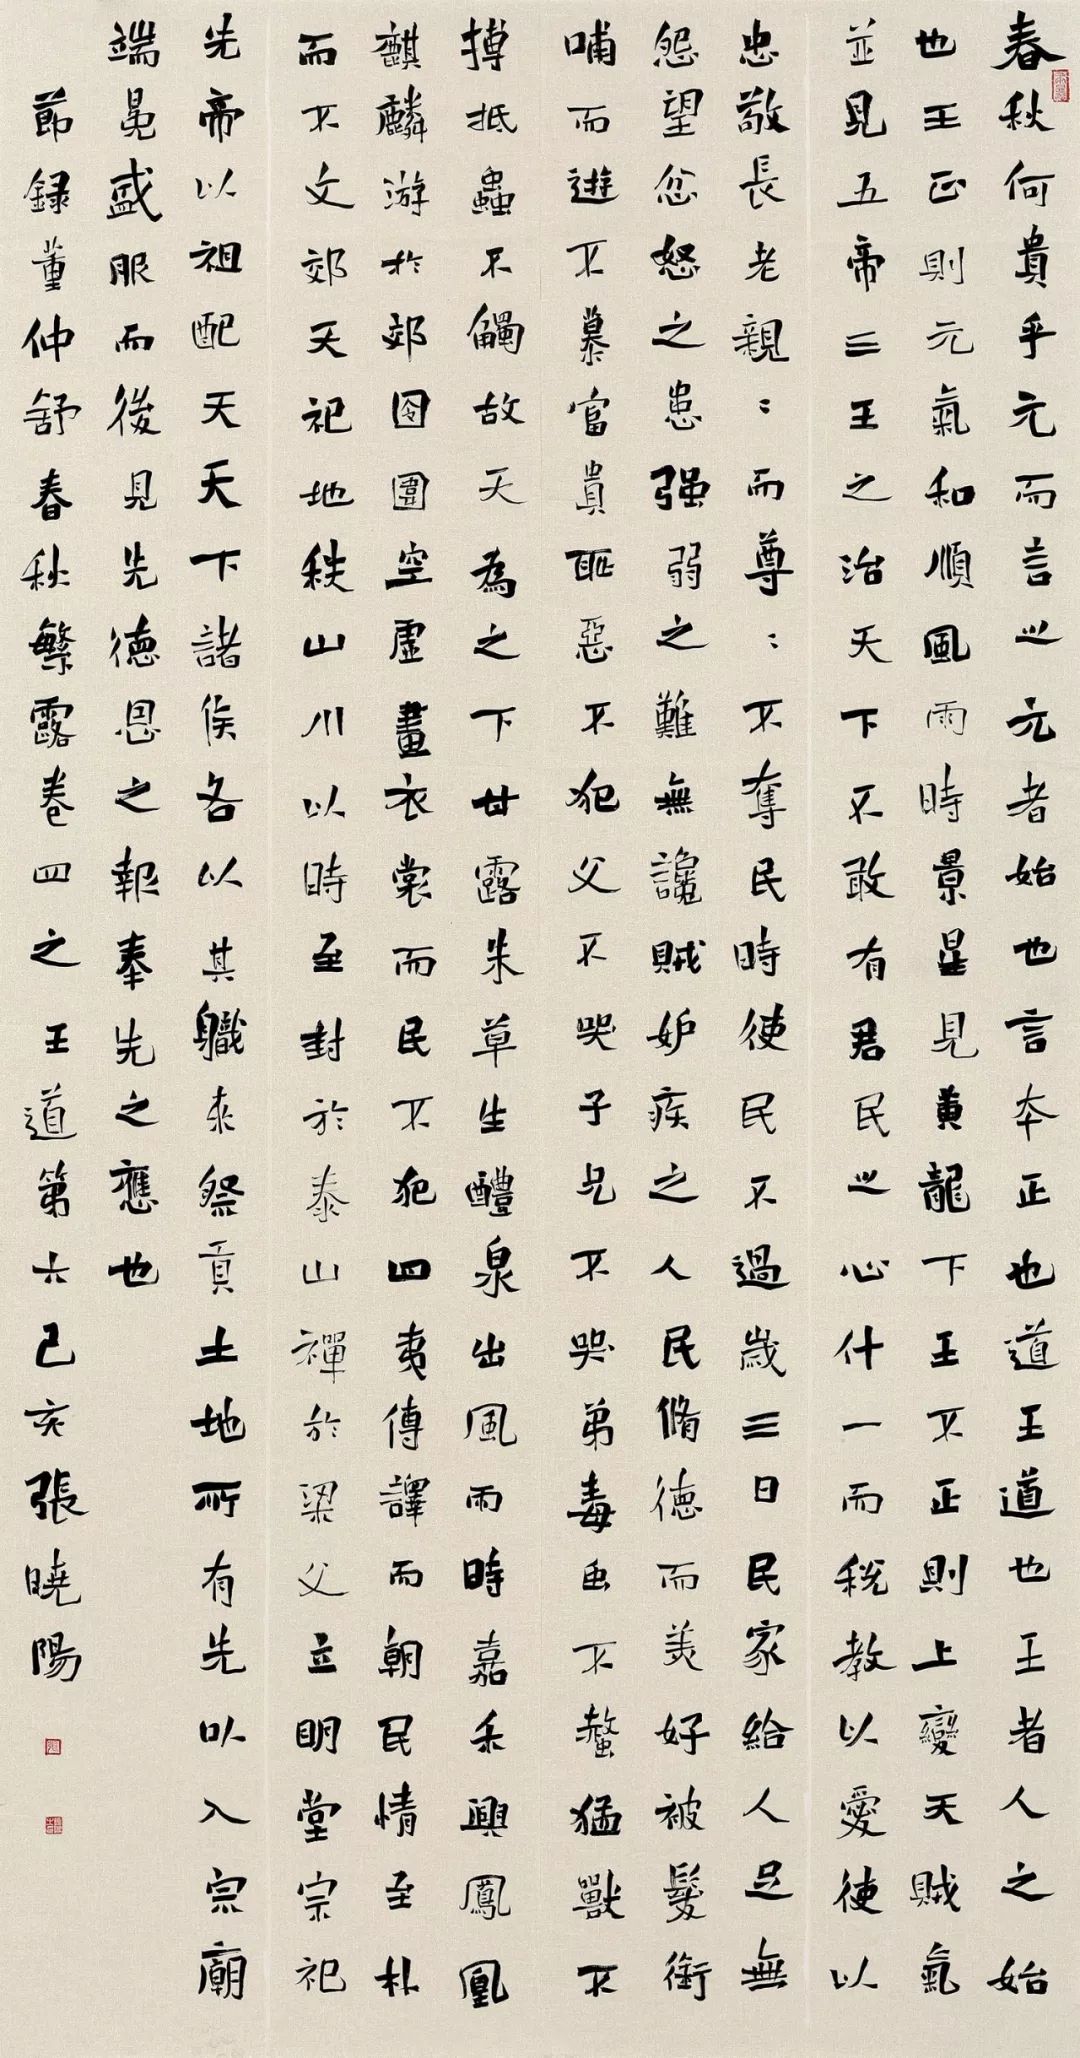 春秋何貴乎元而言之元者始也言本正也道王道也王者人之始
也王正則元氣和順風雨時景星見黃龍下王不正則上變天賊氣
並見五帝三王之治天下不敢有君民之心什一而稅教以愛使以
忠敬長老親〻而尊〻不奪民時使民不過歲三日民家給人足無
怨望忿怒之患强弱之難無讒賊妒疾之人民脩德而美好被髮銜
哺而遊不慕富貴恥惡不犯父不哭子兄不哭弟毒虫不螫猛獸不
搏抵蟲不觸故天為之下甘露朱草生醴泉出風雨時嘉禾興鳳凰
麒麟游於郊囹圄空虛畫衣裳而民不犯四夷傳譯而朝民情至朴
而不文郊天祀地秩山川以時至封於泰山禪於梁父立明堂宗祀
先帝以祖配天天下諸侯各以其職來祭貢土地所有先以入宗廟
端冕盛服而後見先德恩之報奉先之應也
節錄董仲舒春秋繁露卷四之王道第六己亥張曉陽